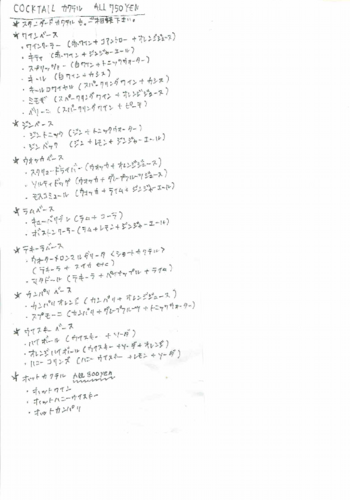 COCKTAIL カクテル ALL 750YEN
★ スタンダードカクテル
★ ワインベース
・ワインクーラー (赤ワイン + コアントロー + オレンジジュース)
・キティ (赤ワイン + ジンジャーエール)
・スプリッツァー (白ワイン + トニックウォーター)
・キール (白ワイン + カシス)
・キールロワイヤル (スパークリングワイン + カシス)
・ミモザ (スパークリングワイン + オレンジジュース)
・ベリーニ (スパークリングワイン + ピーチ)
★ ジンベース
・ジントニック (ジン + トニックウォーター)
・ジンバック (ジン + レモン + ジンジャーエール)
★ ウォッカベース
・スクリュードライバー (ウォッカ + オレンジジュース)
・ソルティドッグ (ウォッカ + グレープフルーツジュース)
・モスコミュール (ウォッカ + ライム + ジンジャーエール)
★ ラムベース
・キューバリブレ (ラム + コーラ)
・ボストンクーラー (ラム + レモン + ジンジャーエール)
★ テキーラベース
(テキーラ +
・マタドール (テキーラ + パイナップル + ライム)
★ カンパリベース
・カンパリオレンジ (カンパリ + オレンジジュース)
・スプモーニ (カンパリ + グレープフルーツ + トニックウォーター)
★ ウイスキーベース
・ハイボール (ウイスキー + ソーダ)
・オレンジハイボール (ウイスキー + ソーダ + オレンジ)
・ハニーコリンズ (ハニーウイスキー + レモン + ソーダ)
★ ホットカクテル ALL 800YEN
・ホットワイン
・ホットハニーウイスキー
・ホットカンパリ